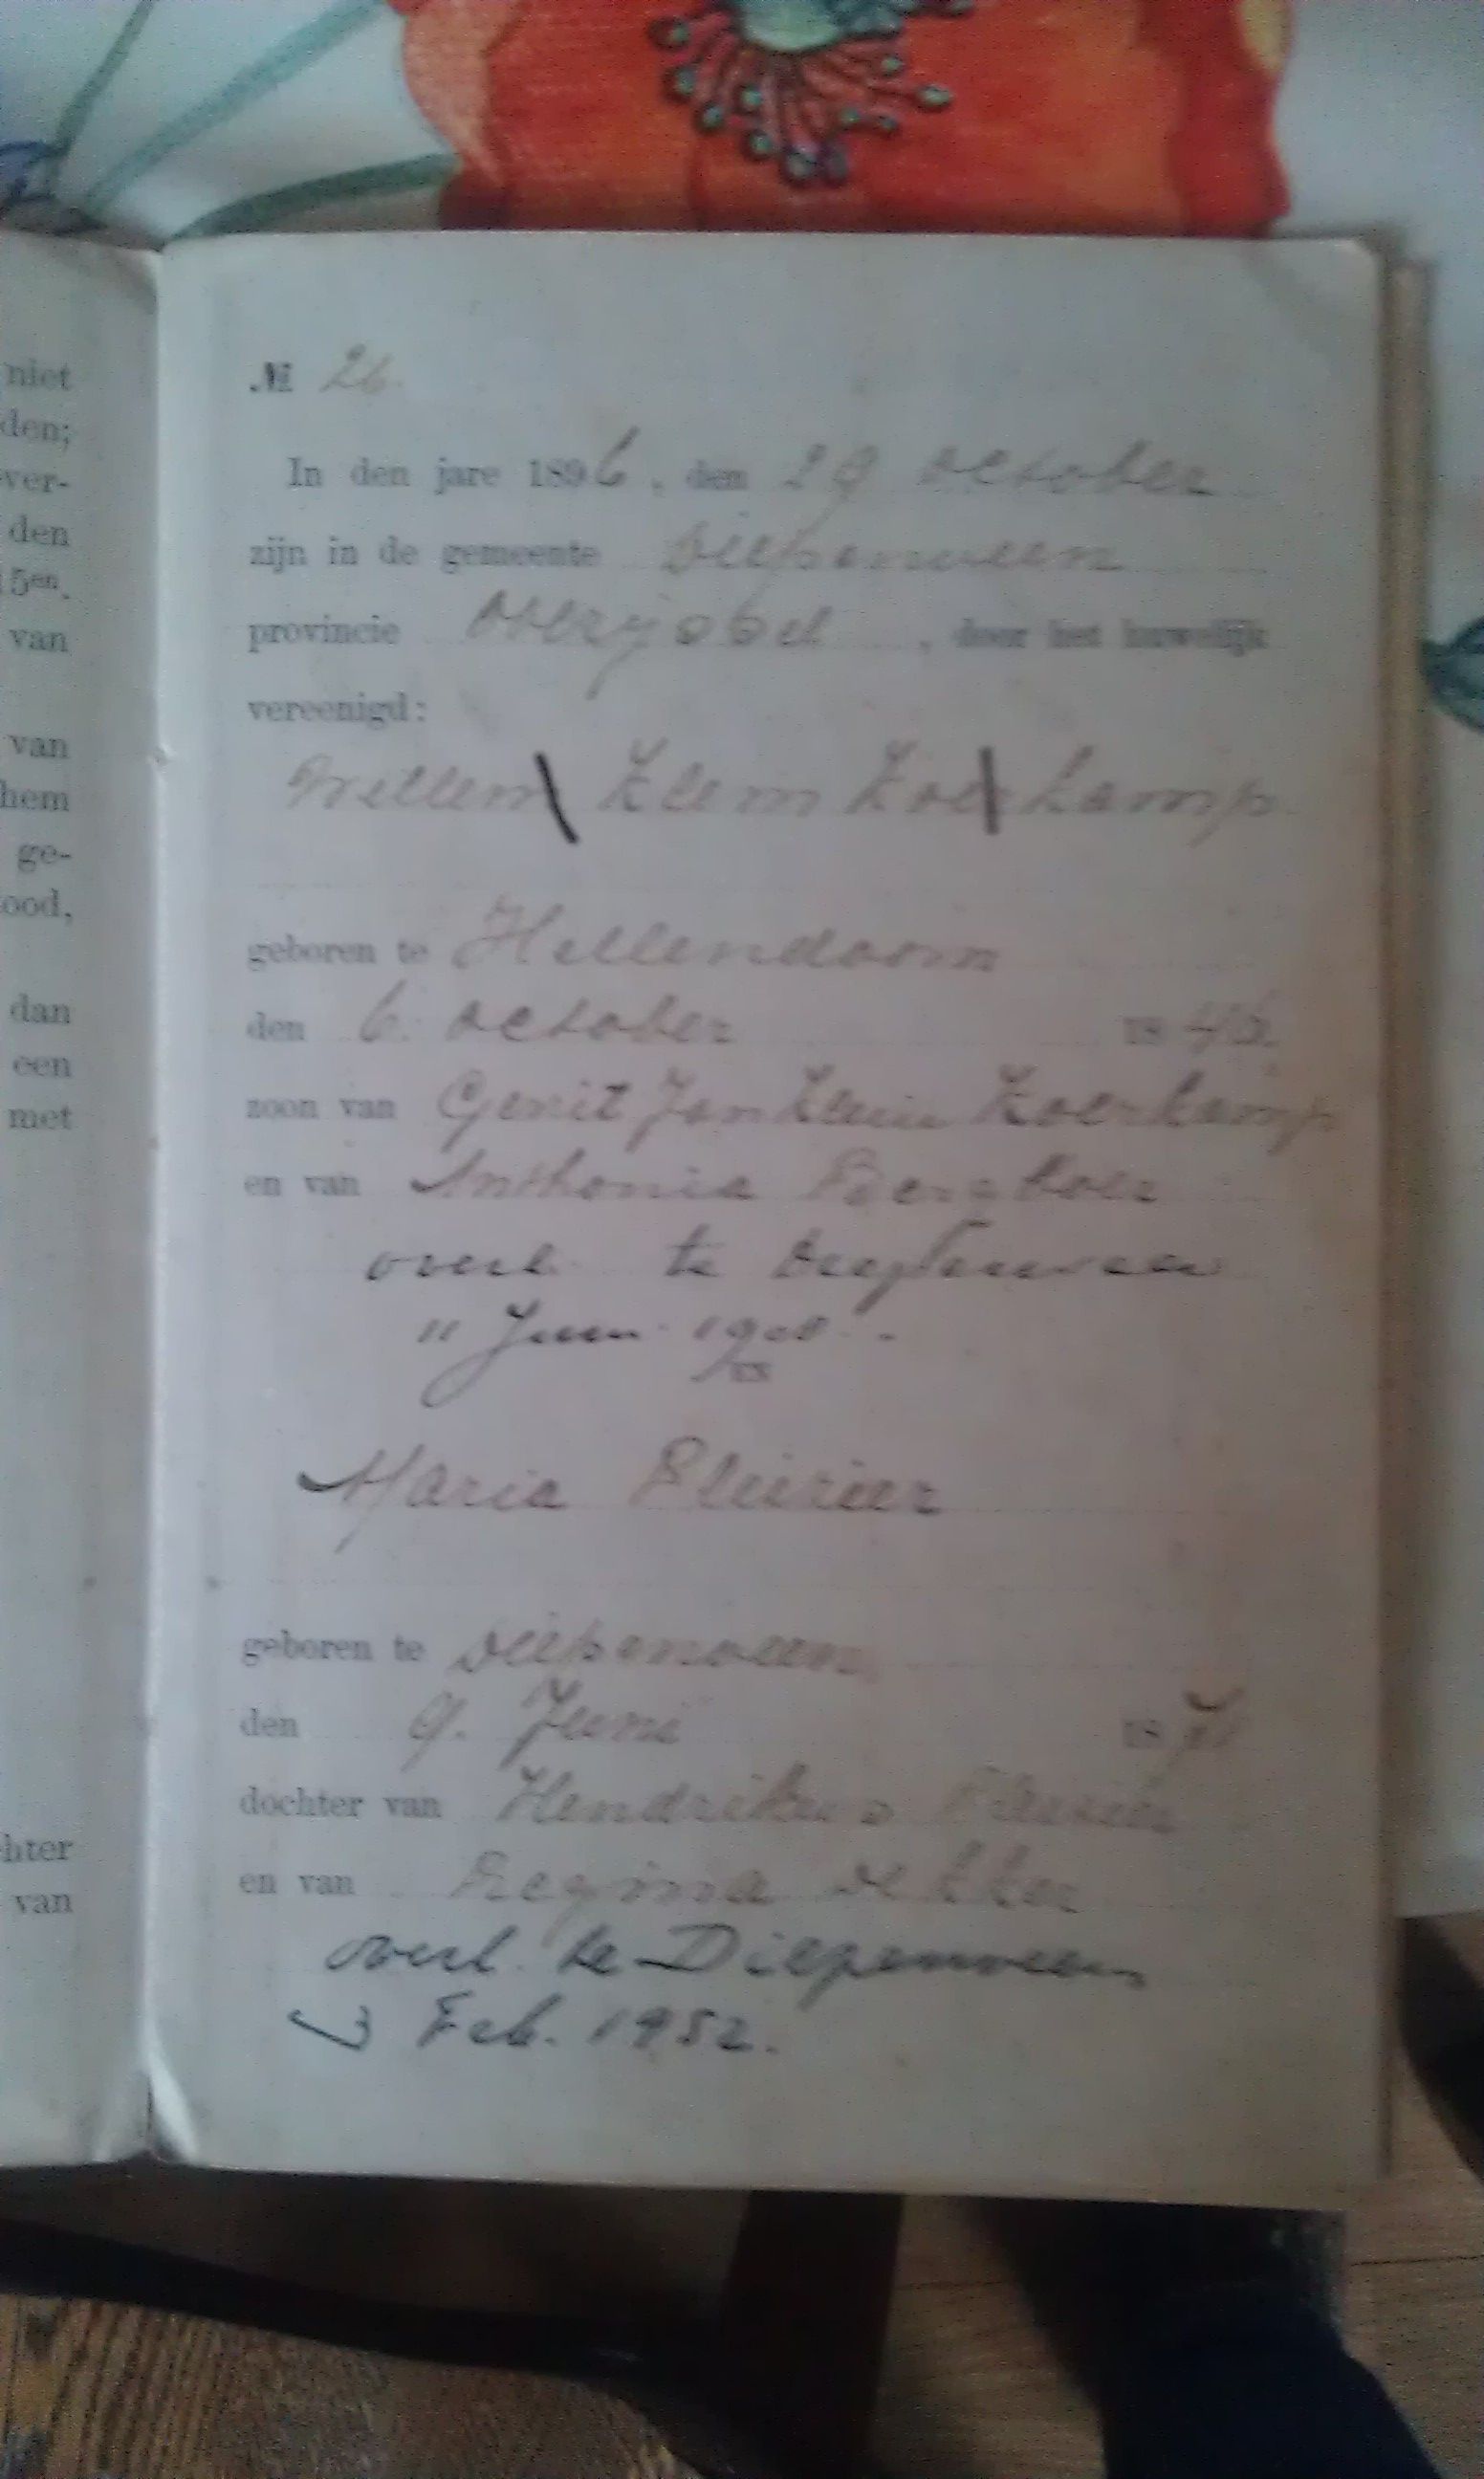 niet
den;
ver-
den
15en.
van
van
hem
ge-
ood,
dan
een
met
hter
van
№ 26.
In den jare 1896, den 29 october
zijn in de gemeente Diepenveen
provincie Overijssel, door het huwelijk
vereenigd:
Willem Klein Koerkamp.
geboren te Hellendoorn
den 6. october 18
zoon van Gerrit Jan Klein Koerkamp
en van Anthonia
overl. te Diepenveen
11 Juni
EN
Maria Fleurier
geboren te Diepenveen
den 9. Juni 1871
dochter van Hendrikus Fleurier
en van Regina Dekker
overl. te Diepenveen
Feb. 1952.